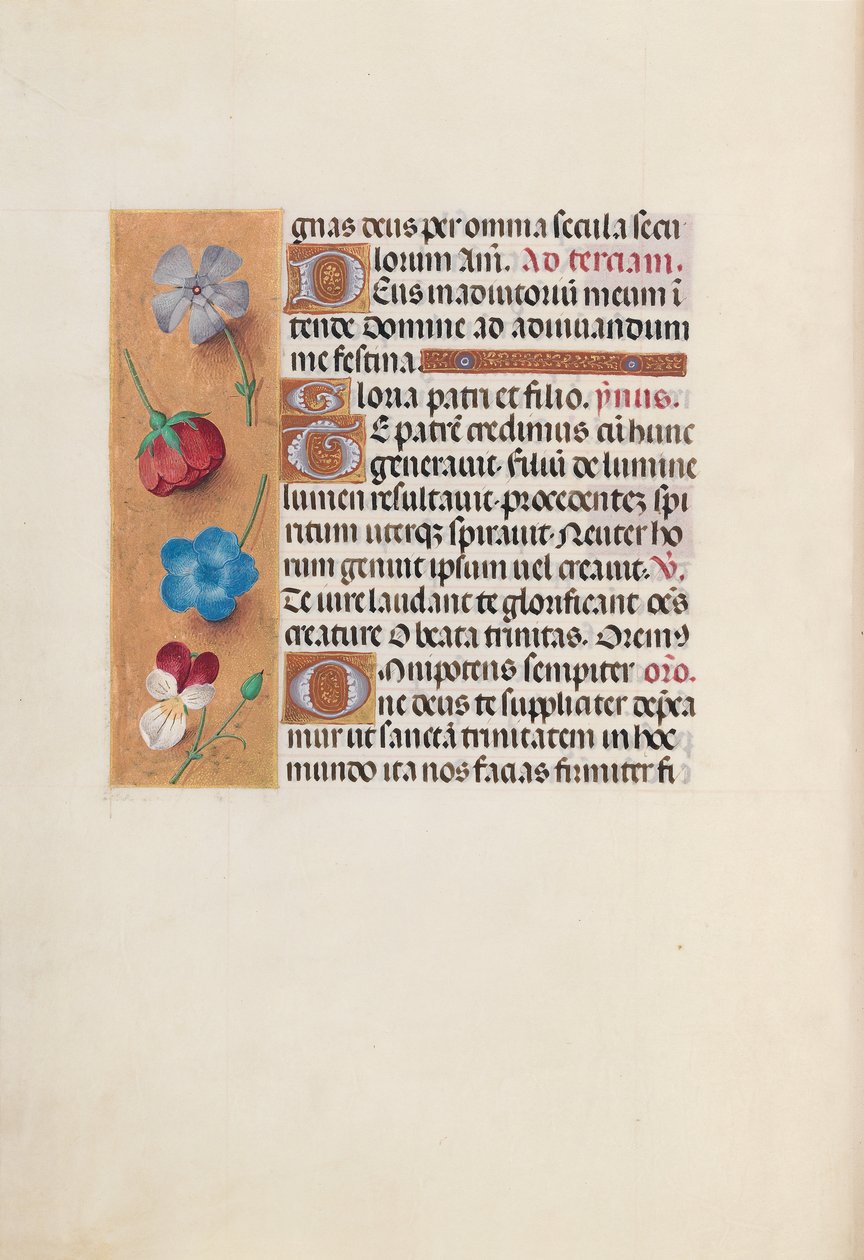 gnas deus per omnia secula secu
lorum Am̄. Ad terciam.
Deus in adiutoriū meum ī
tende Domine ad adiuuandum
me festina.
Gloria patri et filio. ẏnus.
Te patrē credimus cū hunc
generauit. filiū de lumine
lumen resultauit. procedentez spi
ritum uterqꝫ spirauit. Neuter ho
rum genuit ipsum uel creauit. V̄.
Te iure laudant te glorificant oēs
creature O beata trinitas. Oremꝰ
Omnipotens sempiter orō.
ne deus te suppliciter dep̄ca
mur ut sanctā trinitatem in hoc
mundo ita nos facias firmiter fi